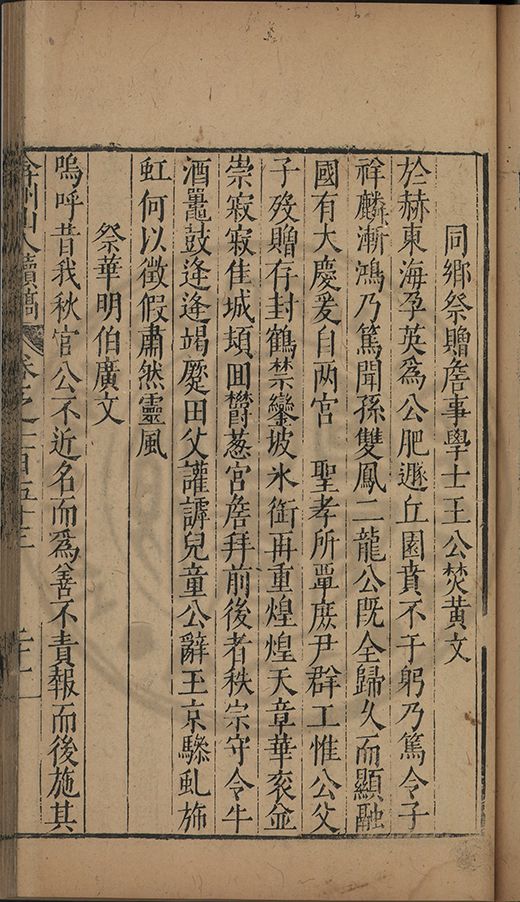 同鄉祭贈詹事學士王公焚黃文
於赫東海孕英爲公肥遯丘園賁不于躬乃篤令子
祥麟漸鴻乃篤聞孫雙鳳二龍公旣全歸久而顯融
國有大慶爰自两宮 聖孝所覃庶尹群工惟公父
子殁贈存封鶴禁鑾坡氷銜再重煌煌天章華衮並
崇寂寂佳城頃囬欝葱宮詹拜前後者秩宗守令牛
酒鼉鼓逢逢竭蹷田父讙謼兒童公辭玉京驂虬斾
虹何以徵假肅然靈風
祭華明伯廣文
嗚呼昔我秋官公不近名而爲善不責報而後施其
弇州山人續稿 卷之一百五十三 二十二